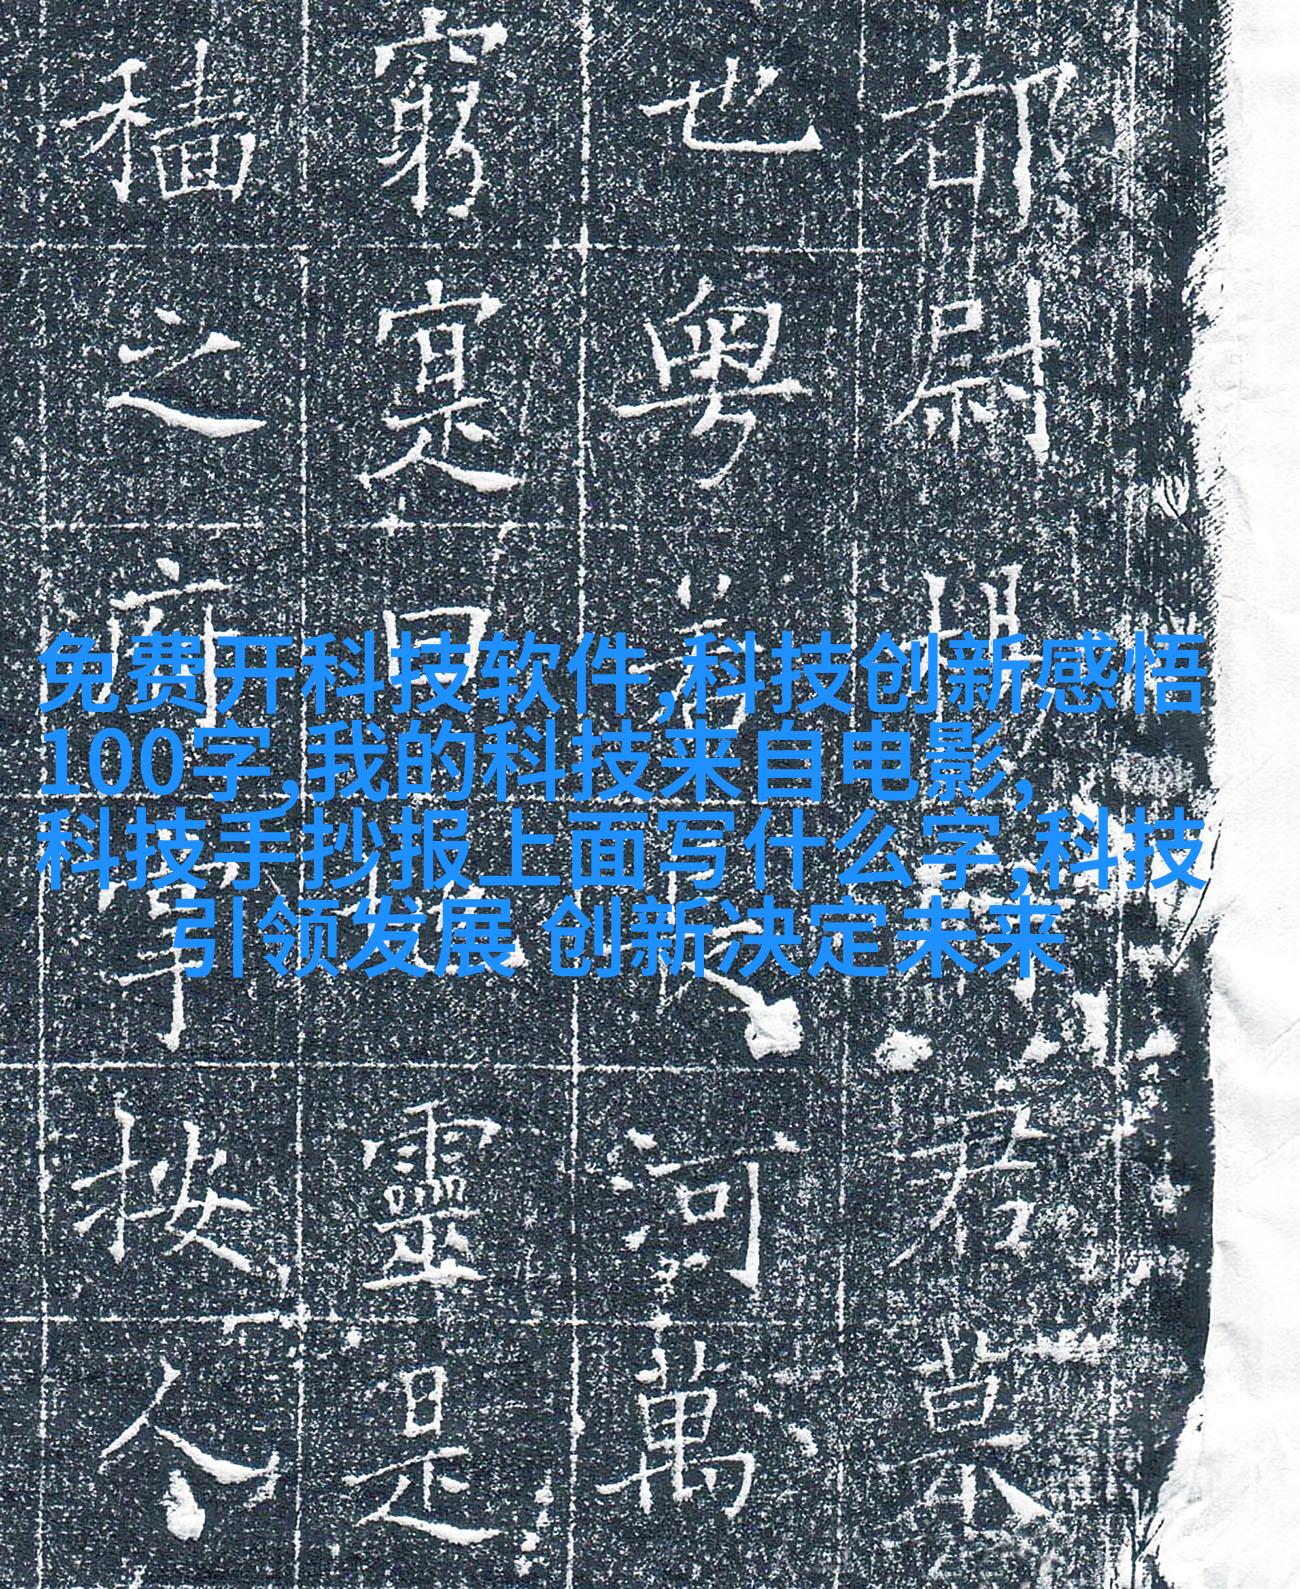 都尉君
也粵河萬
窮寔曰靈是
穡之府按人
免费开科技软件,科技创新感悟
100字,我的科技来自电影,
科技手抄报上面写什么字,科技
引领发展 创新决定未来